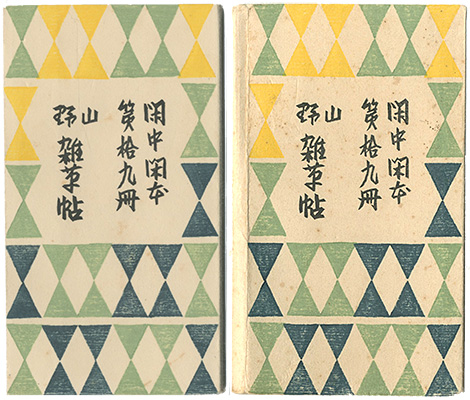 閑中閑本
第拾九冊
山野雑草帖
閑中閑本
第拾九冊
山野雑草帖